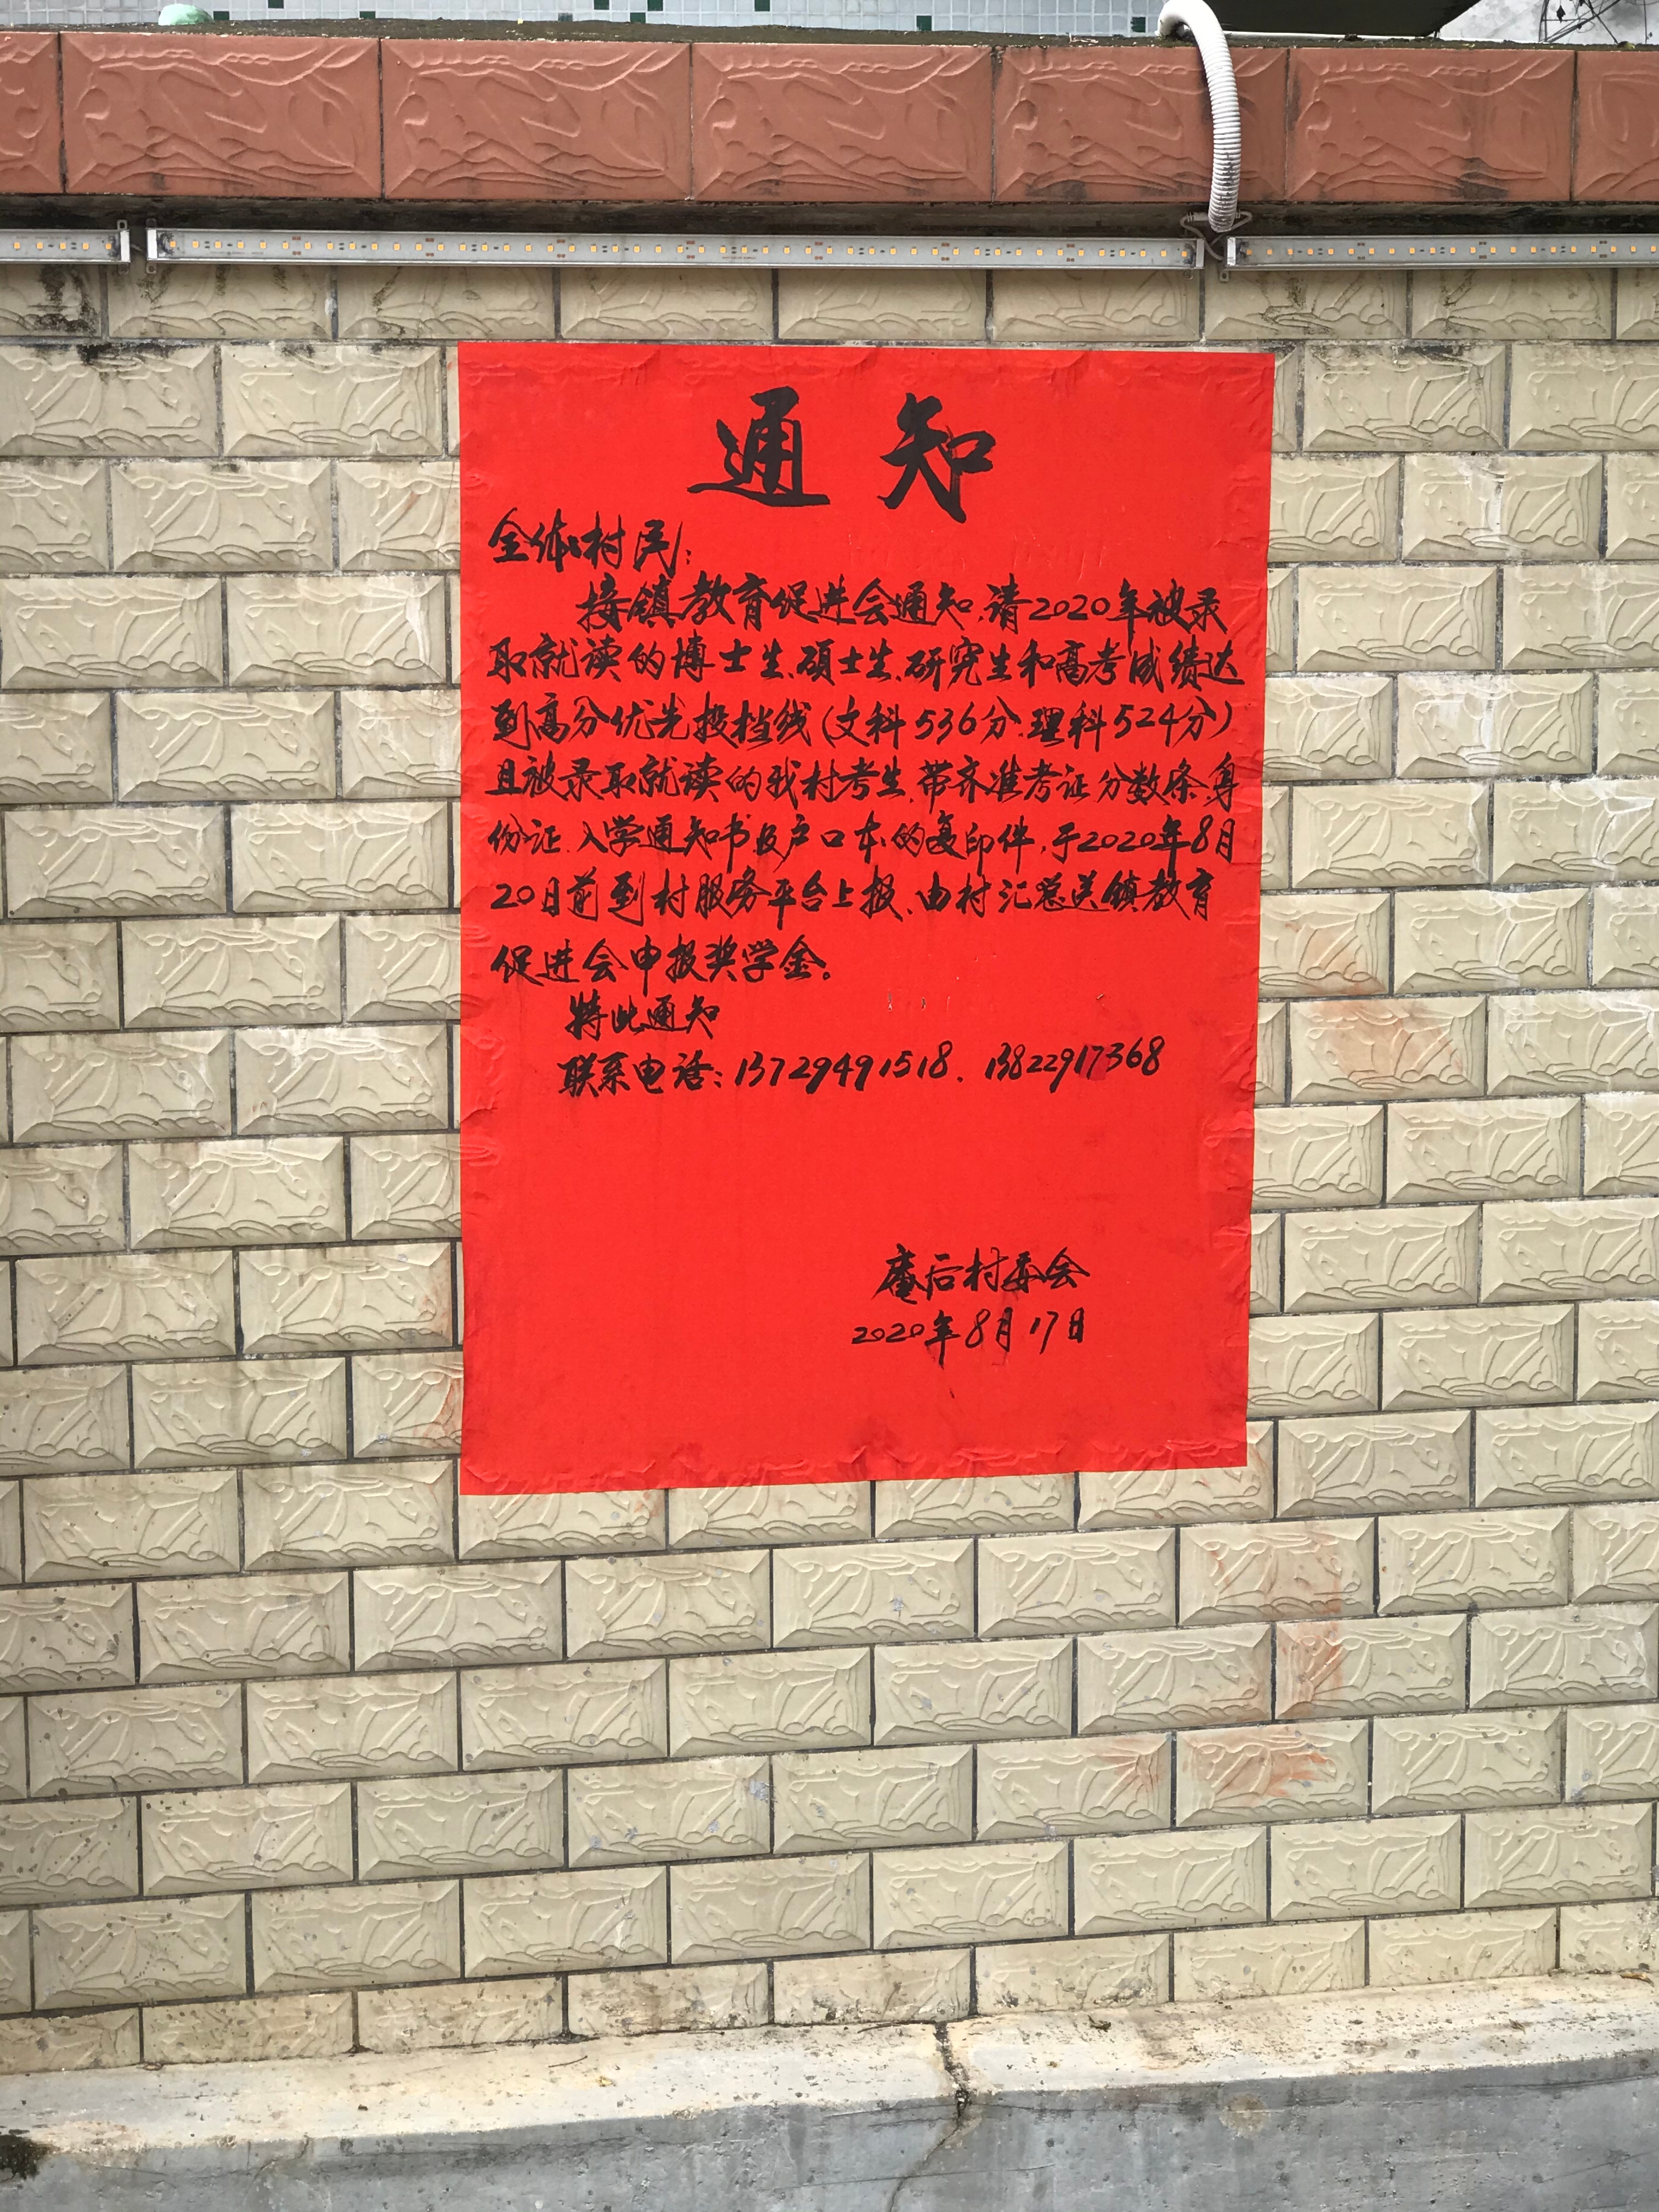 通知
全体村民:
接镇教育促进会通知,请2020年被录
取就读的博士生、硕士生、研究生和高考成绩达
到高分优先投档线(文科536分、理科524分)
且被录取就读的我村考生,带齐准考证、分数条、身
份证、入学通知书及户口本的复印件,于2020年8月
20日前到村服务平台上报、由村汇总送镇教育
促进会申报奖学金。
特此通知
联系电话:13729491518、13822917368
庵后村委会
2020年8月17日